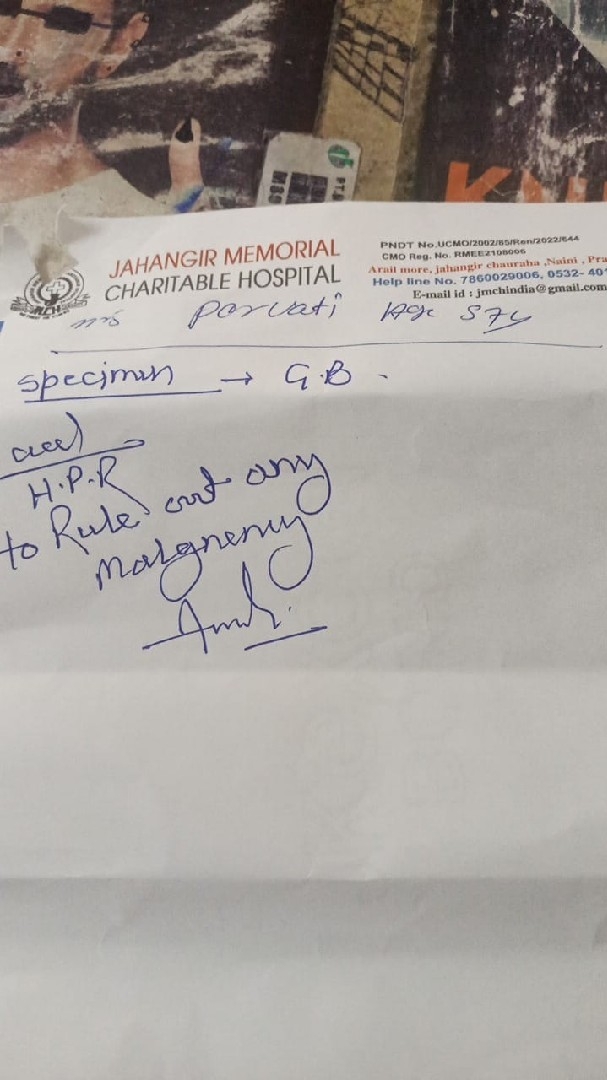 JAHANGIR MEMORIAL
CHARITABLE HOSPITAL
PNDT No.UCMO/2002/65/Ren/2022/644
CMO Reg. No. RMEE2100006
Arail more, jahangir chauraha ,Naini , Pra
Help line No. 7860029006, 0532- 40
E-mail id : jmchindia@gmail.com
mrs Parvati Age 57y
specimen → G.B.
H.P.R
to Rule out any
Malgnency